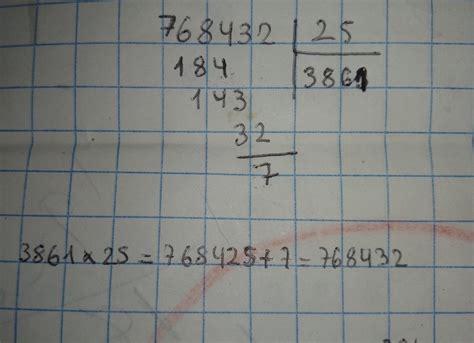 768432 25
184 3861
143
32
7
3861 x 25 = 768425 + 7 = 768432